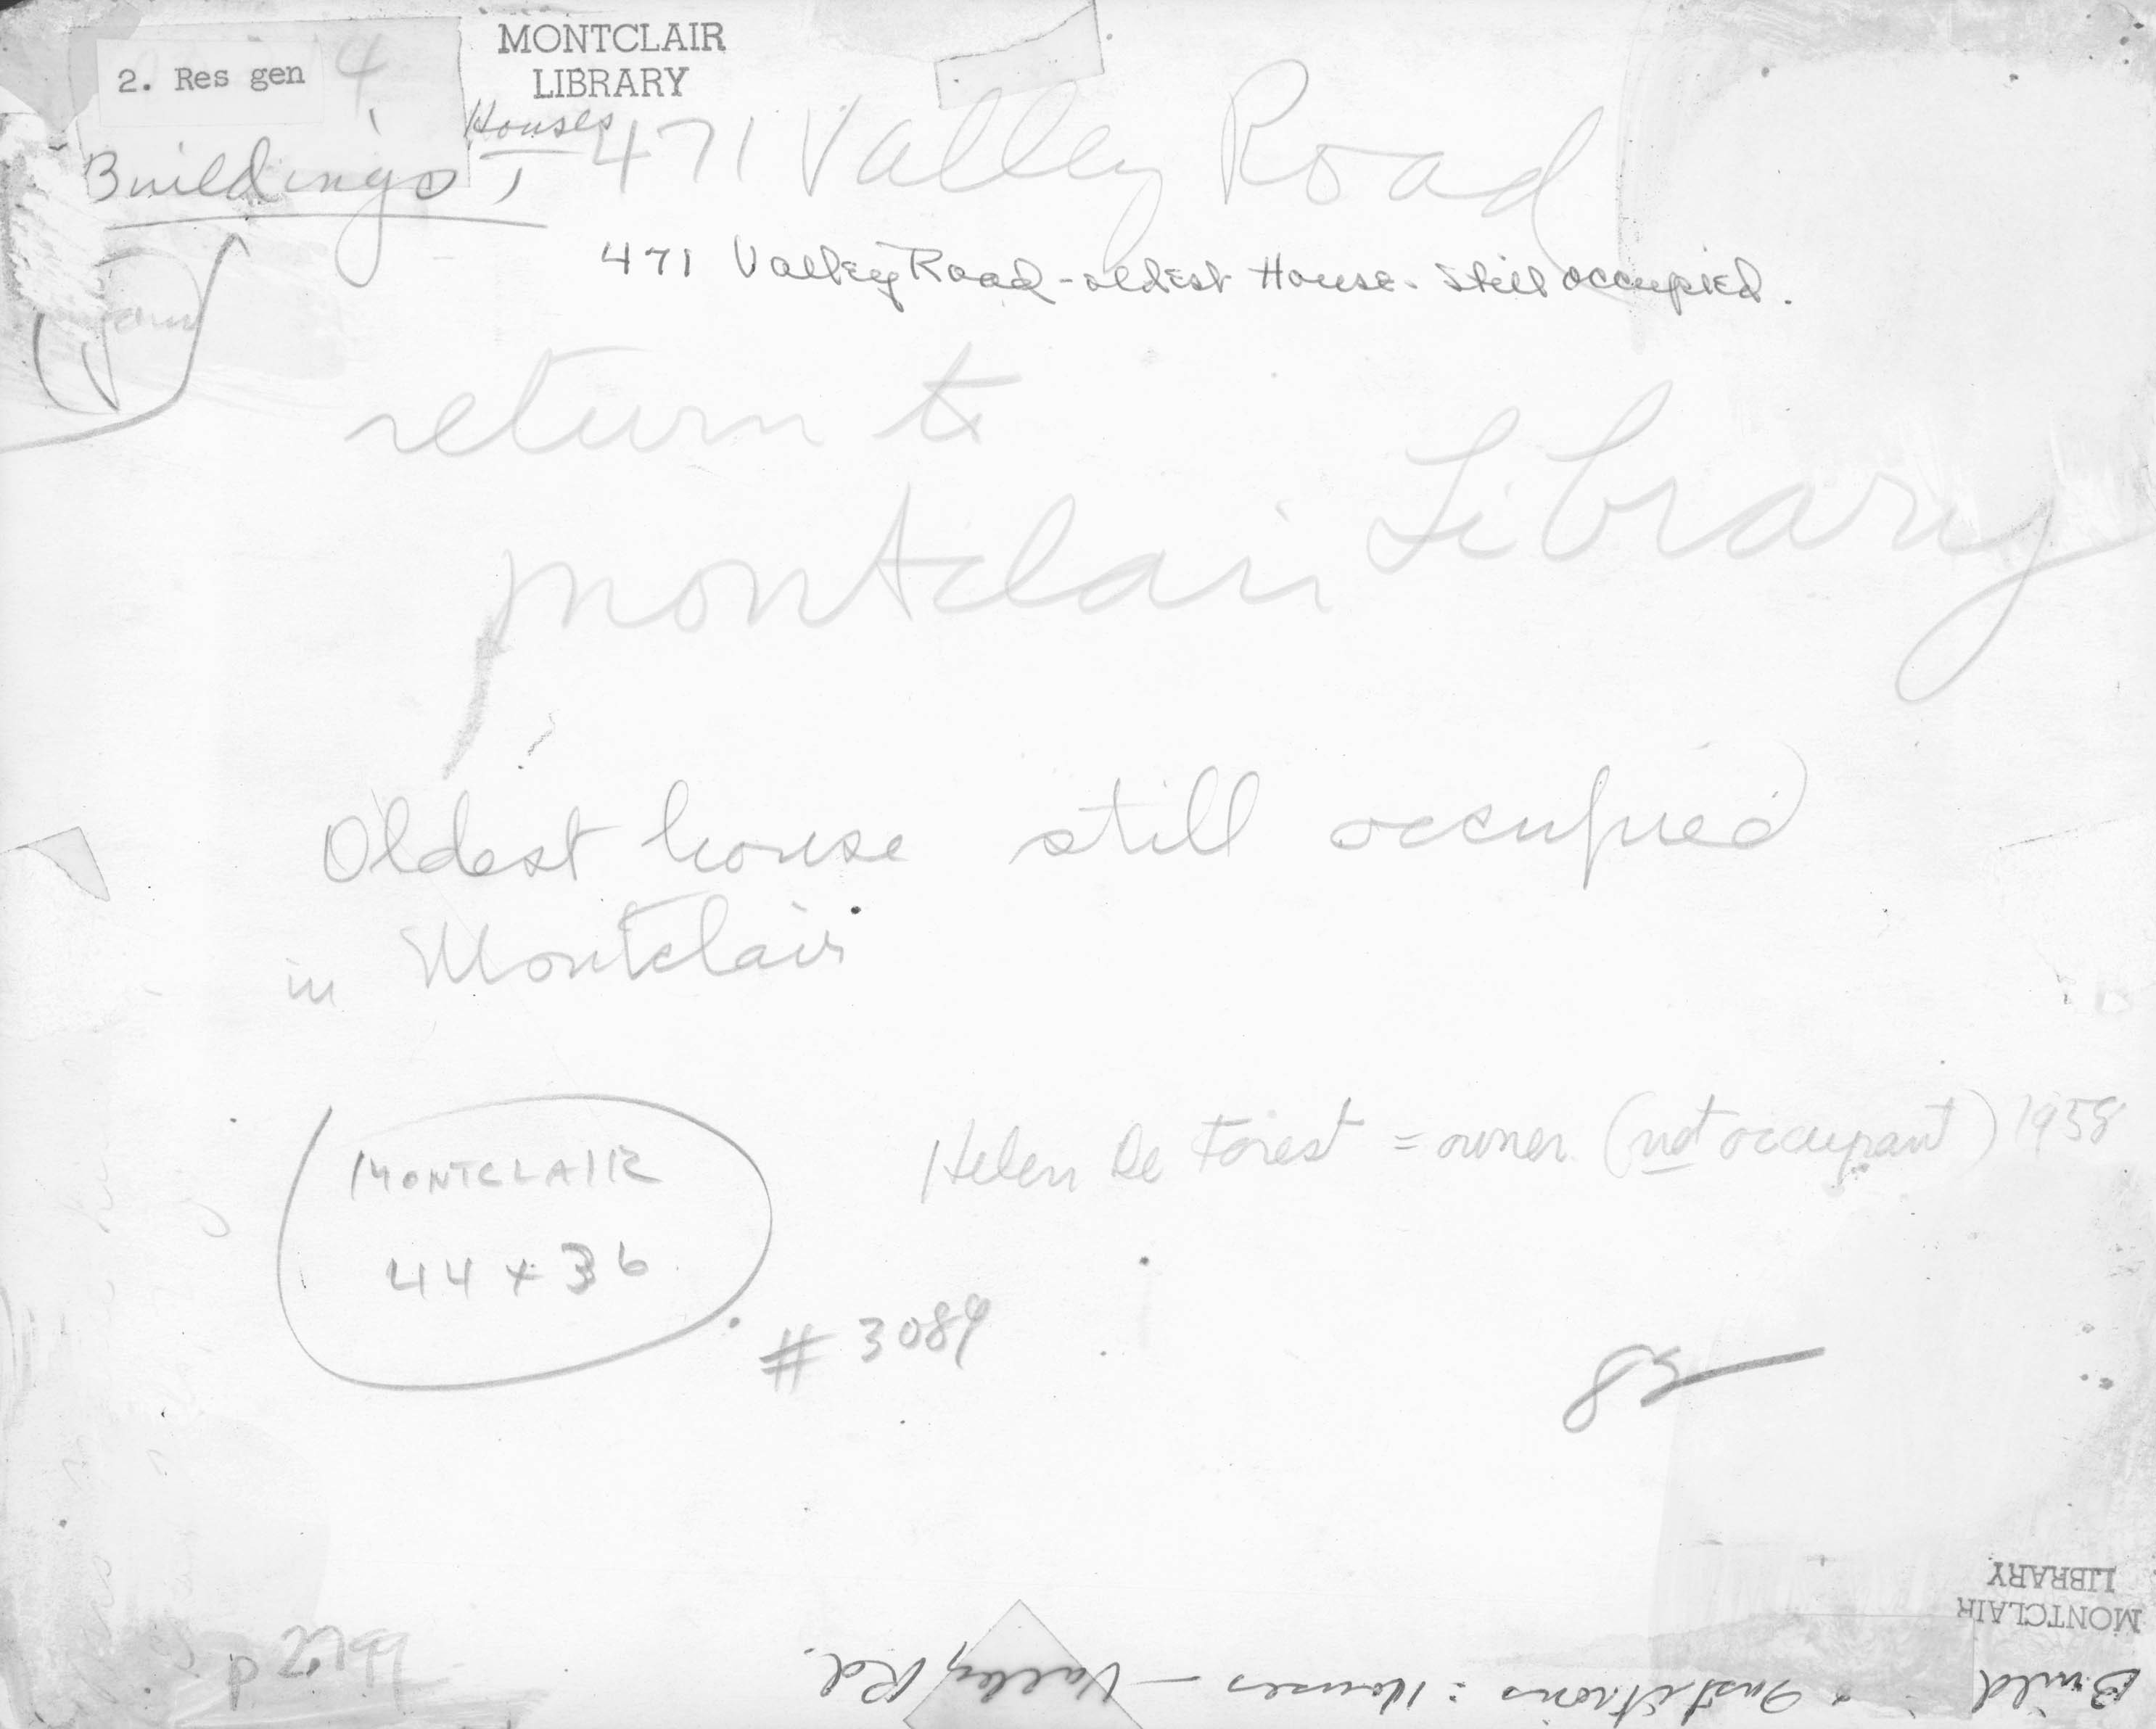 MONTCLAIR
LIBRARY
2. Res gen 4
Houses
Buildings, 471 Valley Road
471 Valley Road - oldest House. Still occupied.
return to
montclair Library
Oldest house still occupied
in Montclair
Helen De Forest = owner (not occupant) 1958
MONTCLAIR
44 x 36
# 3089
85
p 2799
MONTCLAIR
LIBRARY
Build & Institions : Houses — Valley Rd.